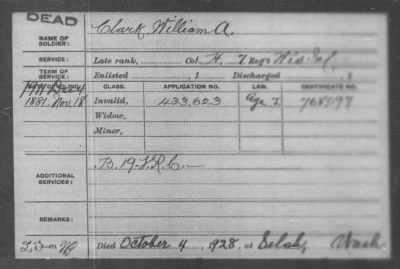 DEAD
NAME OF SOLDIER: Clark, William A.
SERVICE: Late rank, Co. H, 7 Reg't Wis Inf.
TERM OF SERVICE: Enlisted , 1 Discharged , 1
CLASS. APPLICATION NO. LAW. CERTIFICATE NO.
1881. Nov. 18 Invalid, 433,623 Age
Widow,
Minor,
ADDITIONAL SERVICES: B. 19
REMARKS:
Died October 4, 1928, at Selah, Wash.